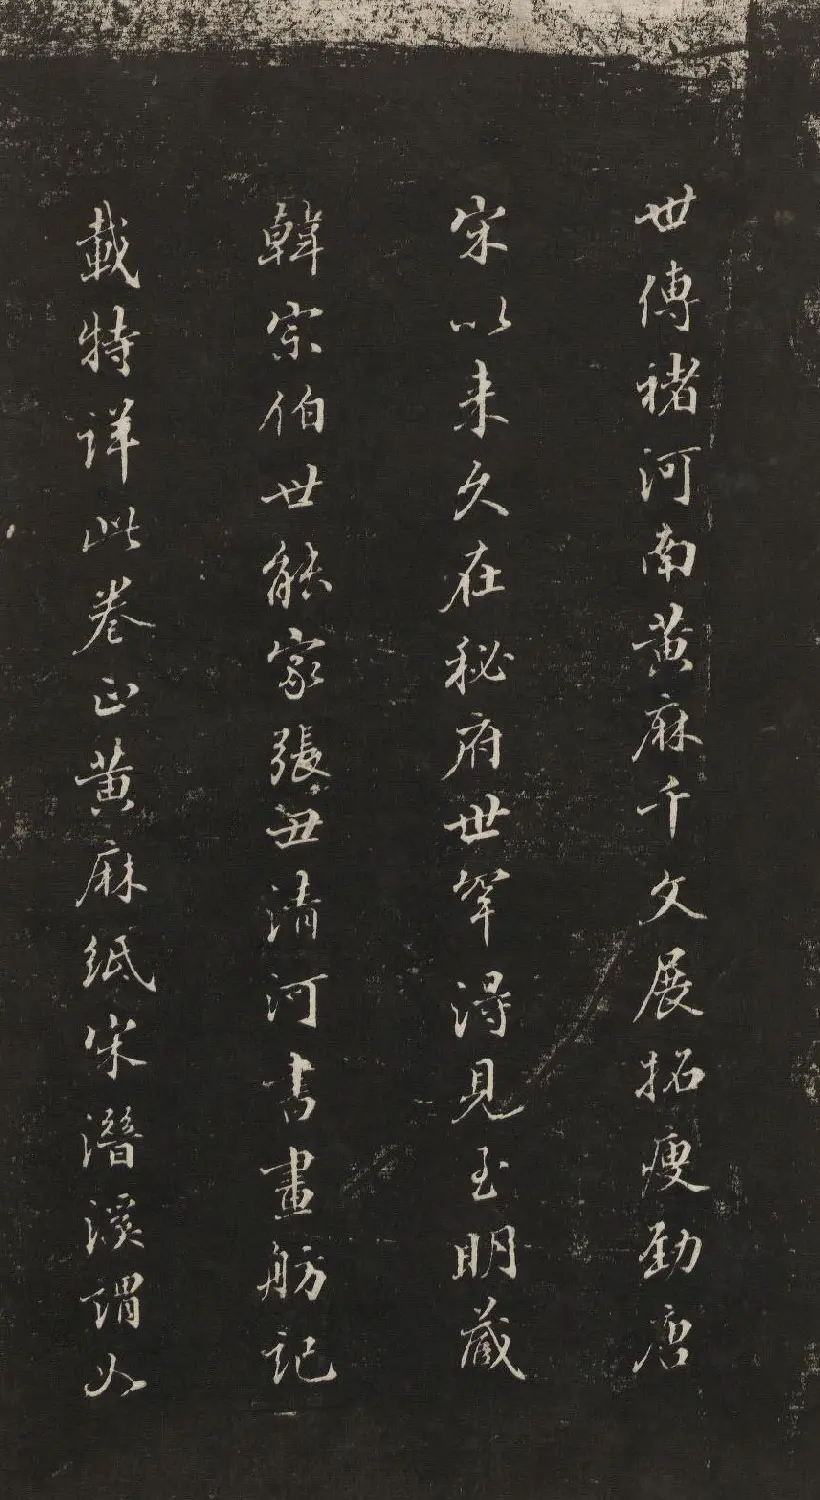 世傳褚河南黄麻千文展拓瘦勁唐
宋以来久在秘府世罕淂見至明藏
韓宗伯世能家張丑清河書畫舫記
載特詳此卷正黄麻紙宋潛溪謂人